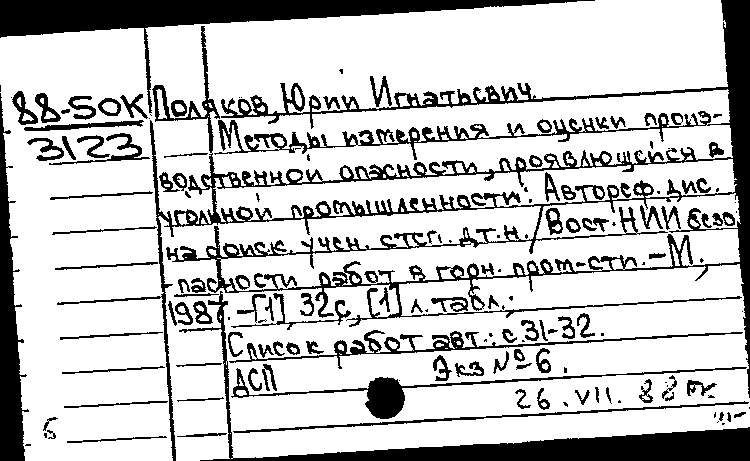 88-50К Поляков, Юрий Игнатьевич.
3123 Методы измерения и оценки произ-
водственной опасности, проявляющейся в
угольной промышленности: Автореф. дис.
на соиск. учен. степ. д.т.н. / Вост. НИИ безо
-пасности работ в горн. пром-сти. - М.,
1987. - [1], 32с., [1] л. табл.;
Список работ авт.: с.31-32.
ДСП Экз №6.
26.VII.88
6